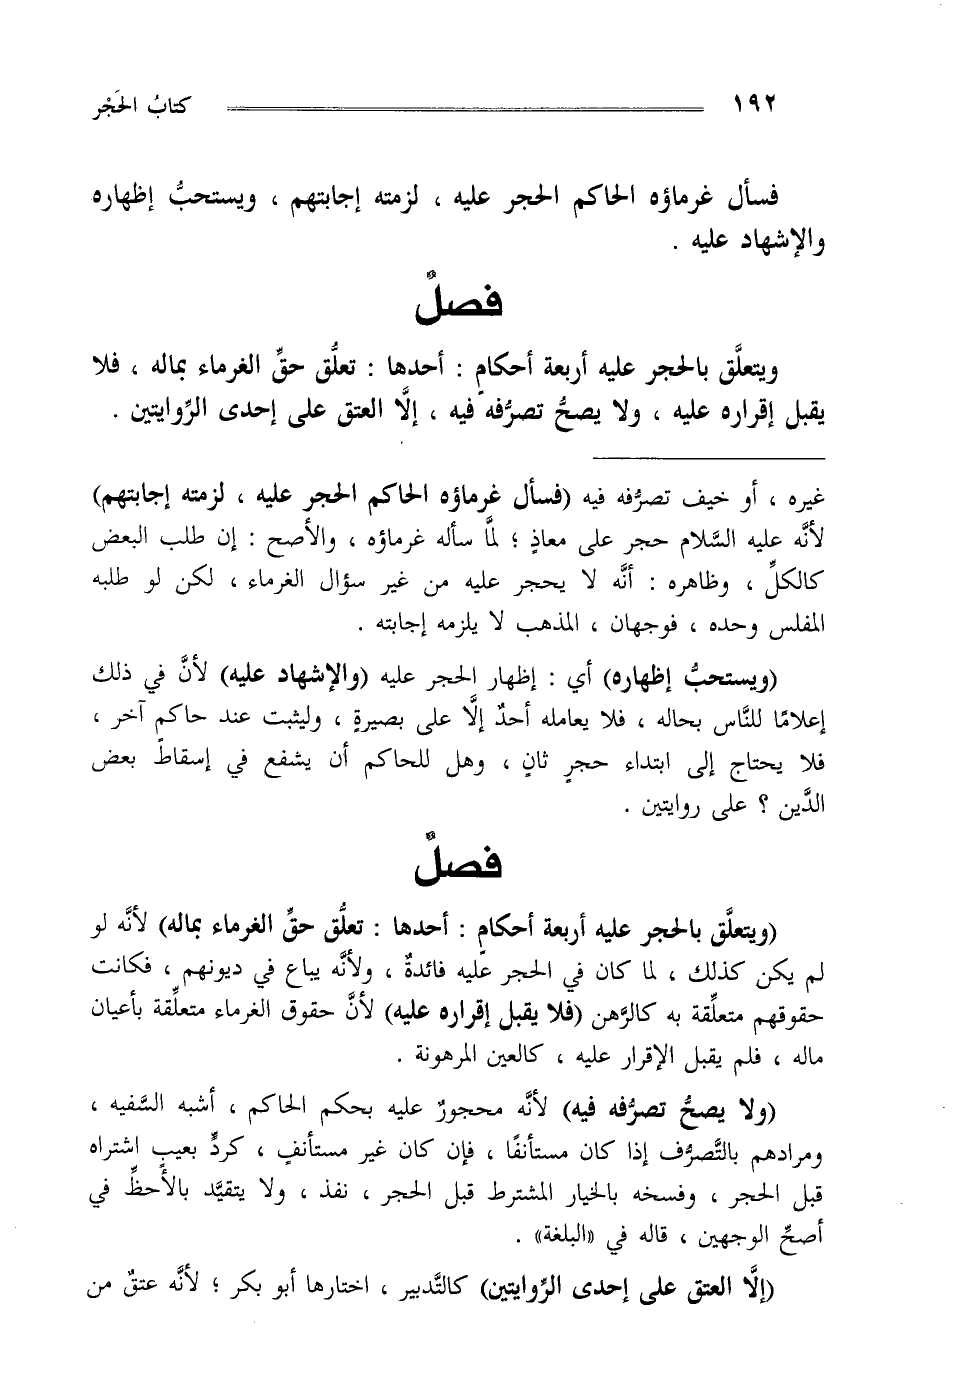 ١٩٢ كتابُ الحَجْر
فسأل غرماؤه الحاكم الحجر عليه ، لزمته إجابتهم ، ويستحبُّ إظهاره
والإشهاد عليه .
فصلٌ
ويتعلَّق بالحجر عليه أربعة أحكامٍ : أحدها : تعلُّق حقِّ الغرماء بماله ، فلا
يقبل إقراره عليه ، ولا يصحُّ تصرُّفه فيه ، إلَّا العتق على إحدى الرِّوايتين .
غيره ، أو خيف تصرُّفه فيه (فسأل غرماؤه الحاكم الحجر عليه ، لزمته إجابتهم)
لأنَّه عليه السَّلام حجر على معاذٍ ؛ لمَّا سأله غرماؤه ، والأصح : إن طلب البعض
كالكلِّ ، وظاهره : أنَّه لا يحجر عليه من غير سؤال الغرماء ، لكن لو طلبه
المفلس وحده ، فوجهان ، المذهب لا يلزمه إجابته .
(ويستحبُّ إظهاره) أي : إظهار الحجر عليه (والإشهاد عليه) لأنَّ في ذلك
إعلامًا للنَّاس بحاله ، فلا يعامله أحدٌ إلَّا على بصيرةٍ ، وليثبت عند حاكم آخر ،
فلا يحتاج إلى ابتداء حجرٍ ثانٍ ، وهل للحاكم أن يشفع في إسقاط بعض
الدَّين ؟ على روايتين .
فصلٌ
(ويتعلَّق بالحجر عليه أربعة أحكامٍ : أحدها : تعلُّق حقِّ الغرماء بماله) لأنَّه لو
لم يكن كذلك ، لما كان في الحجر عليه فائدةٌ ، ولأنَّه يباع في ديونهم ، فكانت
حقوقهم متعلِّقة به كالرَّهن (فلا يقبل إقراره عليه) لأنَّ حقوق الغرماء متعلِّقة بأعيان
ماله ، فلم يقبل الإقرار عليه ، كالعين المرهونة .
(ولا يصحُّ تصرُّفه فيه) لأنَّه محجورٌ عليه بحكم الحاكم ، أشبه السَّفيه ،
ومرادهم بالتَّصرُّف إذا كان مستأنفًا ، فإن كان غير مستأنفٍ ، كردٍّ بعيبٍ اشتراه
قبل الحجر ، وفسخه بالخيار المشترط قبل الحجر ، نفذ ، ولا يتقيَّد بالأحظِّ في
أصحِّ الوجهين ، قاله في «البلغة» .
(إلَّا العتق على إحدى الرِّوايتين) كالتَّدبير ، اختارها أبو بكر ؛ لأنَّه عتقٌ من